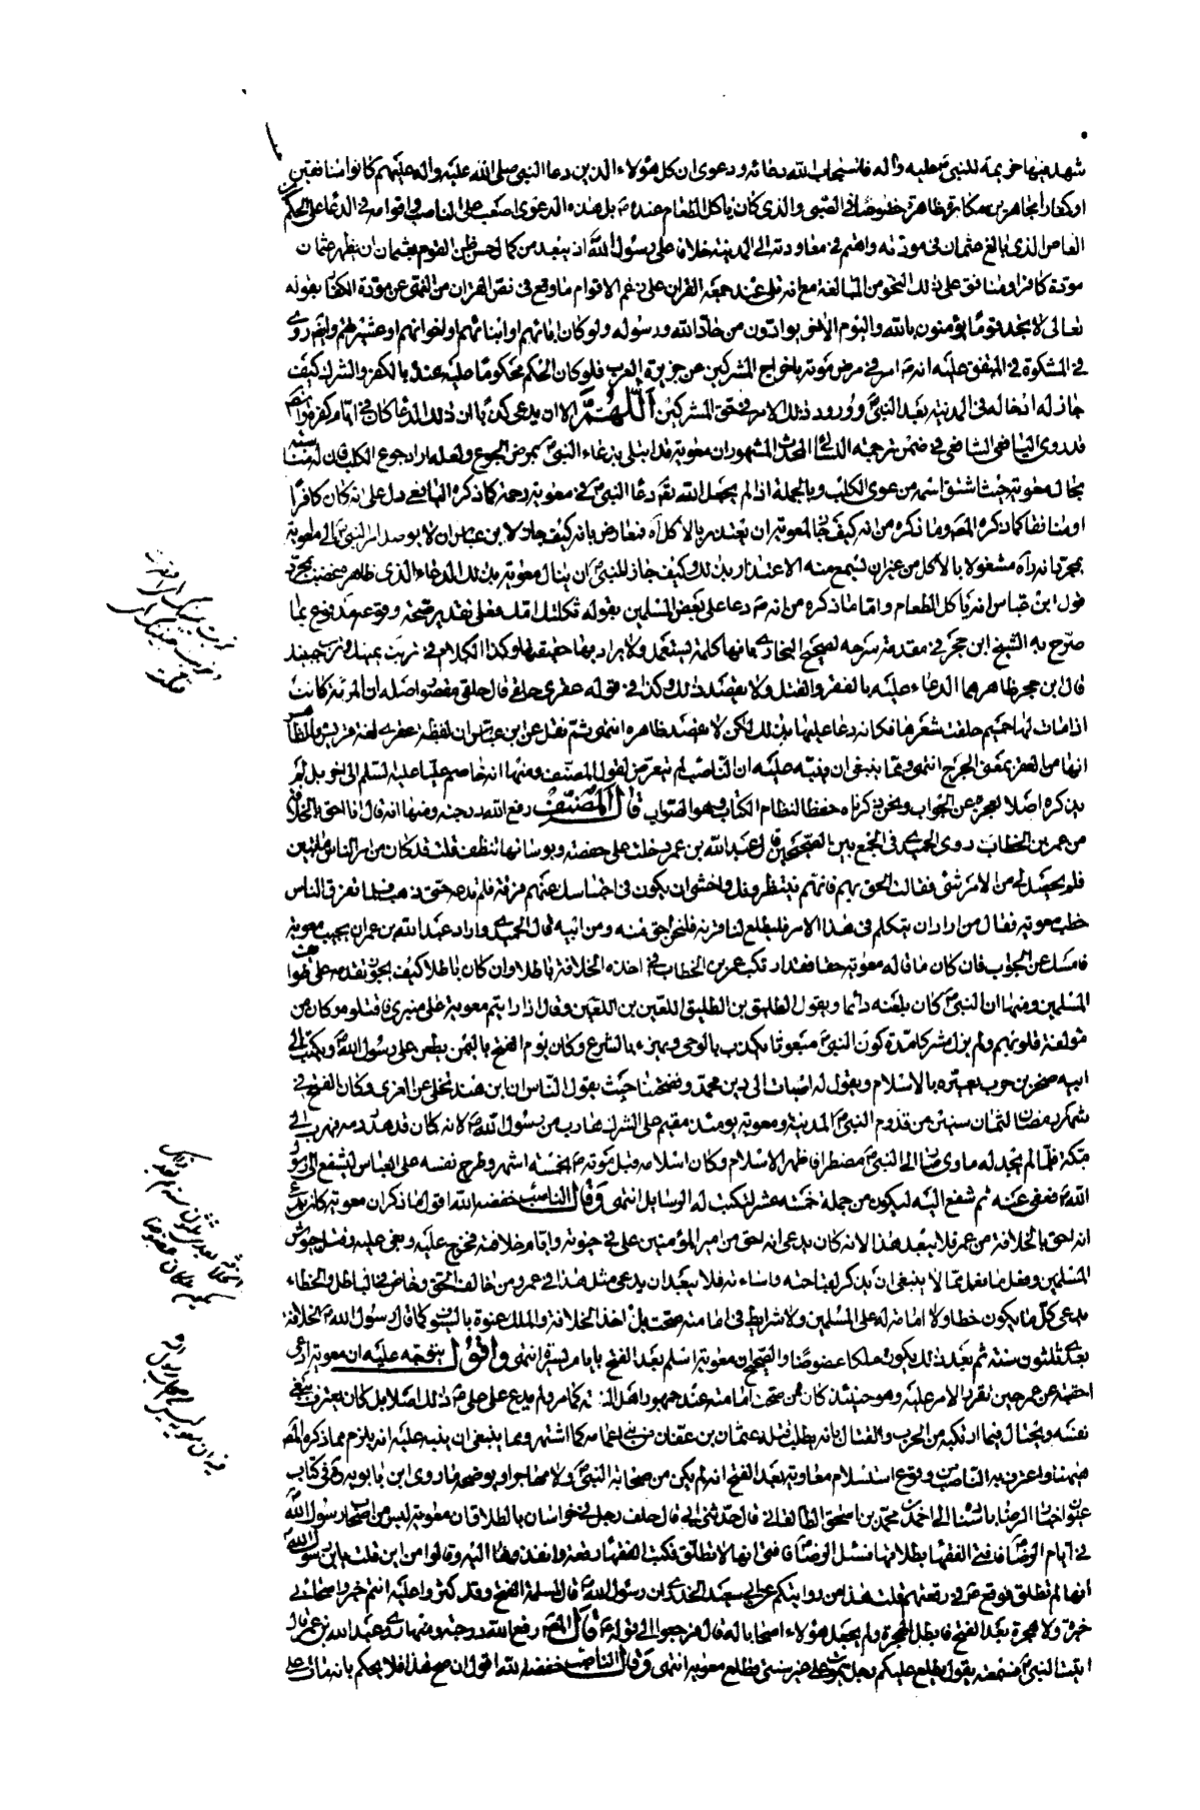 شهد فيها خزيمة للنبي عليه وآله فاستجاب الله دعائه ودعوى ان كل هؤلاء الذين دعا النبي صلى الله عليه وآله عليهم كانوا منافقين
او كفارا مجاهرين مكابرة ظاهرة خصوصا في الصبي والذي كان يأكل الطعام عنده بل هذه الدعوى اصعب على الناصب واقوامه في الدعاء على الحكم
العاص الذي بالغ عثمان في مودته واهتم في معاودته الى المدينة خلافا على رسول الله اذ يبعد من كمال حسن ظن القوم بعثمان ان يظهر عثمان
مودة كافر او منافق على ذلك النحو من المبالغة مع انه تلى عند جمعه القران على زعم الاقوام ما وقع في نص القران من النهي عن مودة الكفار بقوله
تعالى لا تجد قوما يؤمنون بالله واليوم الاخر يوادون من حاد الله ورسوله ولو كان ابائهم او ابنائهم او اخوانهم او عشيرتهم وايضا روى
في المشكوة في المتفق عليه انه امر في مرض موته باخراج المشركين من جزيرة العرب فلو كان الحكم محكوما عليه عنده بالكفر والشرك كيف
جاز له ادخاله في المدينة بعد النبي وورود ذلك الامر في حق المشركين اللهم الا ان يدعى كذبا ان ذلك الدعا كان في ايام كفرهم
قد روى اليافعي الشافعي في ضمن ترجمة النسائي المحدث المشهور ان معوية قد ابتلى بدعاء النبي بمرض الجوع ولعله اراد جوع الكلب فان له مناسبة
بحال معوية حيث اشتق اسمه من عوى الكلب وبالجملة اذا لم يجعل الله تعالى دعا النبي في معوية رحمة كما ذكره اليافعي دل على انه كان كافرا
او منافقا كما ذكره المصنف وما ذكره من انه كيف لمعوية ان يعتذر بالاكل آه فمعارض بانه كيف جاز لابن عباس ان لا يوصل امر النبي الى معوية
بمجرد بانه رآه مشغولا بالاكل من غير ان يسمع منه الاعتذار بذلك وكيف جاز للنبي ان ينال معوية بذلك الدعاء الذي ظاهره بمجرد
قول ابن عباس انه يأكل الطعام واما ما ذكره من انه دعا على بعض المسلمين بقوله ثكلتك امك فعلى تقدير صحته ووقوعه مدفوع بما
صرح به الشيخ ابن حجر في مقدمة شرحه لصحيح البخاري بانها كلمة تستعمل ولا يراد بها حقيقتها وكذا الكلام في تربت يمينك
قال ابن حجر ظاهرهما الدعاء عليه بالفقر والقتل ولا يقصد ذلك وكذا في قوله عقرى حلقى قال حلقى مقصورا اصله ان المرئة كانت
اذا مات لها حميم حلقت شعرها فكانه دعا عليها بذلك لكن لا يقصد ظاهره انتهى ثم نقل عن ابن عباس ان لفظة عقرى لغة قريش والظاهر
انها من العقر بمعنى الجرح انتهى ومما ينبغي ان ينبه عليه ان الناصب لم يتعرض لقول المصنف ومنها انه خاصم عليا عليه السلم الى اخره بل لم
يذكره اصلا لعجزه عن الجواب ونحن ذكرناه حفظا لنظام الكتاب وهو الصواب قال المصنف رفع الله درجته ومنها انه قال انا احق بالخلافة
من عمر بن الخطاب روى الحميدي في الجمع بين الصحيحين قال عبد الله بن عمر دخلت على حفصة ونوسانها تنظف قلت قد كان من امر الناس ما ترين
فلم يجعل لي من الامر شئ فقالت الحق بهم فانهم ينتظرونك واخشى ان يكون في احتباسك عنهم فرقة فلم تدعه حتى ذهب فلما تفرق الناس
خطب معوية فقال من اراد ان يتكلم في هذا الامر فليطلع لنا قرنه فلنحن احق منه ومن ابيه قال الحميدي واراد عبد الله بن عمر ان يجيب معوية
فامسك عن الجواب فان كان ما قاله معوية حقا فقد ارتكب عمر بن الخطاب في اخذه الخلافة باطلا وان كان باطلا كيف يجوز تقدمه على طوايف
المسلمين ومنها ان النبي كان يلعنه دائما ويقول الطليق بن الطليق اللعين بن اللعين وقال اذا رايتم معوية على منبري فاقتلوه وكان من
مؤلفة قلوبهم ولم يزل مشركا مدة كون النبي مبعوثا يكذب بالوحي ويهزء بالشرع وكان يوم الفتح باليمن يطعن على رسول الله ويكتب الى
ابيه صخر بن حرب يعيره بالاسلام ويقول له اصبأت الى دين محمد وفضحتنا حيث يقول الناس ان ابن هند تخلى عن العزى وكان الفتح في
شهر رمضان لثمان سنين من قدوم النبي المدينة ومعوية يومئذ مقيم على الشرك هارب من رسول الله لانه كان قد هدر دمه فهرب الى
مكة فلما لم يجد له مأوى صار الى النبي مضطرا فاظهر الاسلام وكان اسلامه قبل موته بخمسة اشهر وطرح نفسه على العباس ليشفع الى رسول
الله فعفى عنه ثم شفع اليه ليكون من جملة خمسة عشر ليكتب له الوسايل انتهى وقال الناصب خفضه الله اقول ما ذكر ان معوية كان يدعى
انه احق بالخلافة من عمر فلا يبعد هذا لانه كان يدعى انه احق من امير المؤمنين علي في حيوته وايام خلافته فخرج عليه وبغى عليه وقتل جيوش
المسلمين وفعل ما فعل مما لا ينبغي ان يذكر لقباحته واساءته فلا يبعد ان يدعى مثل هذا في عمر ومن خالف الحق وخاض في الباطل والخطاء
يدعى كل ما يكون خطا ولا امامة له على المسلمين ولا شرايط في امامته صحت بل اخذ الخلافة والملك عنوة بالسيف كما قال رسول الله الخلافة
بعدي ثلثون سنة ثم بعد ذلك يكون ملكا عضوضا والصحيح ان معوية اسلم بعد الفتح بايام يسيرة انتهى واقول يتوجه عليه ان معوية ادعى
احقيته عن عمر حين تقرر الامر عليه وهو حينئذ كان ممن صحت امامته عند جمهور اهل السنة كما مر ولم يدع على علي ذلك اصلا بل كان يعترف ببغي
نفسه ويحتال فيما ارتكبه من الحرب والقتال بانه يطلب قتلة عثمان بن عفان كما اشتهر ومما ينبغي ان ينبه عليه انه يلزم مما ذكره المصنف
هيهنا واعترف به الناصب من وقوع استسلام معاوية بعد الفتح انه لم يكن من صحابة النبي ولا مهاجرا ويوضحه ما روى ابن بابويه في كتاب
عيون اخبار الرضا باسناد الى احمد بن محمد بن اسحق الطالقاني قال حدثني ابي قال حلف رجل في خراسان بالطلاق ان معوية ليس من اصحاب رسول الله
في ايام الرضا فافتى الفقهاء بطلاقها فسئل الرضا فافتى انها لا تطلق فكتب الفقهاء رقعة وانفذوها اليه وقالوا من اين قلت يا ابن رسول الله
انها لم تطلق فوقع في رقعتهم قلت هذا من روايتكم عن ابي سعيد الخدري ان رسول الله قال لمسلمة الفتح وقد كثروا عليه انتم خير واصحابي
خير ولا هجرة بعد الفتح فابطل الهجرة ولم يجعل هؤلاء اصحابا له قال فرجعوا الى قوله قال المصنف رفع الله درجته ومنها روى عبد الله بن عمر قال
اتيت النبي فسمعته يقول يطلع عليكم رجل يموت على غير سنتي فطلع معوية انتهى وقال الناصب خفضه الله اقول ان صح هذا فلا يحكم بانه مات على